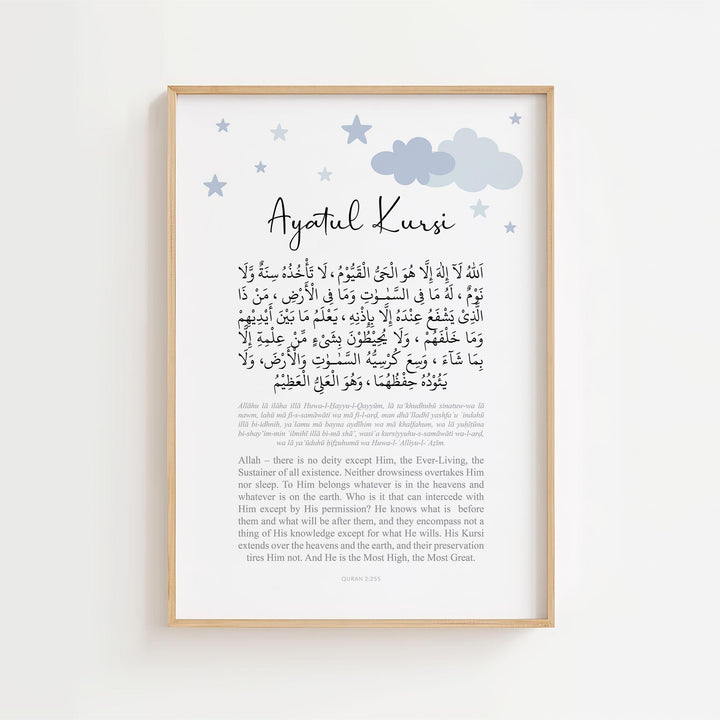 Ayatul Kursi
اَللّٰهُ لَآ إِلٰهَ إِلَّا هُوَ الْحَيُّ الْقَيُّوْمُ ، لَا تَأْخُذُهٗ سِنَةٌ وَّلَا
نَوْمٌ ، لَهٗ مَا فِي السَّمٰوٰتِ وَمَا فِي الْأَرْضِ ، مَنْ ذَا
الَّذِيْ يَشْفَعُ عِنْدَهٗ إِلَّا بِإِذْنِهٖ ، يَعْلَمُ مَا بَيْنَ أَيْدِيْهِمْ
وَمَا خَلْفَهُمْ ، وَلَا يُحِيْطُوْنَ بِشَيْءٍ مِّنْ عِلْمِهٖ إِلَّا
بِمَا شَآءَ ، وَسِعَ كُرْسِيُّهُ السَّمٰوٰتِ وَالْأَرْضَ، وَلَا
يَئُوْدُهٗ حِفْظُهُمَا ، وَهُوَ الْعَلِيُّ الْعَظِيْمُ
Allāhu lā ilāha illā Huwa-l-Ḥayyu-l-Qayyūm, lā ta'khudhuhū sinatuw-wa lā
nawm, lahū mā fi-s-samāwāti wa mā fi-l-arḍ, man dhā'lladhī yashfa'u 'indahū
illā bi-idhnih, ya'lamu mā bayna aydīhim wa mā khalfahum, wa lā yuḥīṭūna
bi-shay'im-min 'ilmihī illā bi-mā shā', wasi'a kursiyyuhu-s-samāwāti wa-l-arḍ,
wa lā ya'ūduhū ḥifẓuhumā wa Huwa-l-'Alliyu-l-'Aẓīm.
Allah – there is no deity except Him, the Ever-Living, the
Sustainer of all existence. Neither drowsiness overtakes Him
nor sleep. To Him belongs whatever is in the heavens and
whatever is on the earth. Who is it that can intercede with
Him except by His permission? He knows what is before
them and what will be after them, and they encompass not a
thing of His knowledge except for what He wills. His Kursi
extends over the heavens and the earth, and their preservation
tires Him not. And He is the Most High, the Most Great.
QURAN 2:255